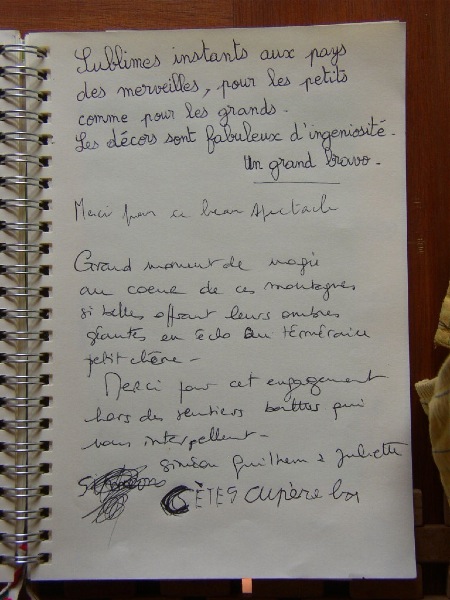 Sublimes instants aux pays
des merveilles, pour les petits
comme pour les grands.
Les décors sont fabuleux d'ingeniosité.
Un grand bravo.
Merci pour ce beau spectacle
Grand moment de magie
au coeur de ces montagnes
si belles offrant leurs ombres
géantes en écho au téméraire
petit chêne -
Merci pour cet engagement
hors des sentiers battus qui
nous interpellent -
Siméon Guilhem & Juliette
CÉTES